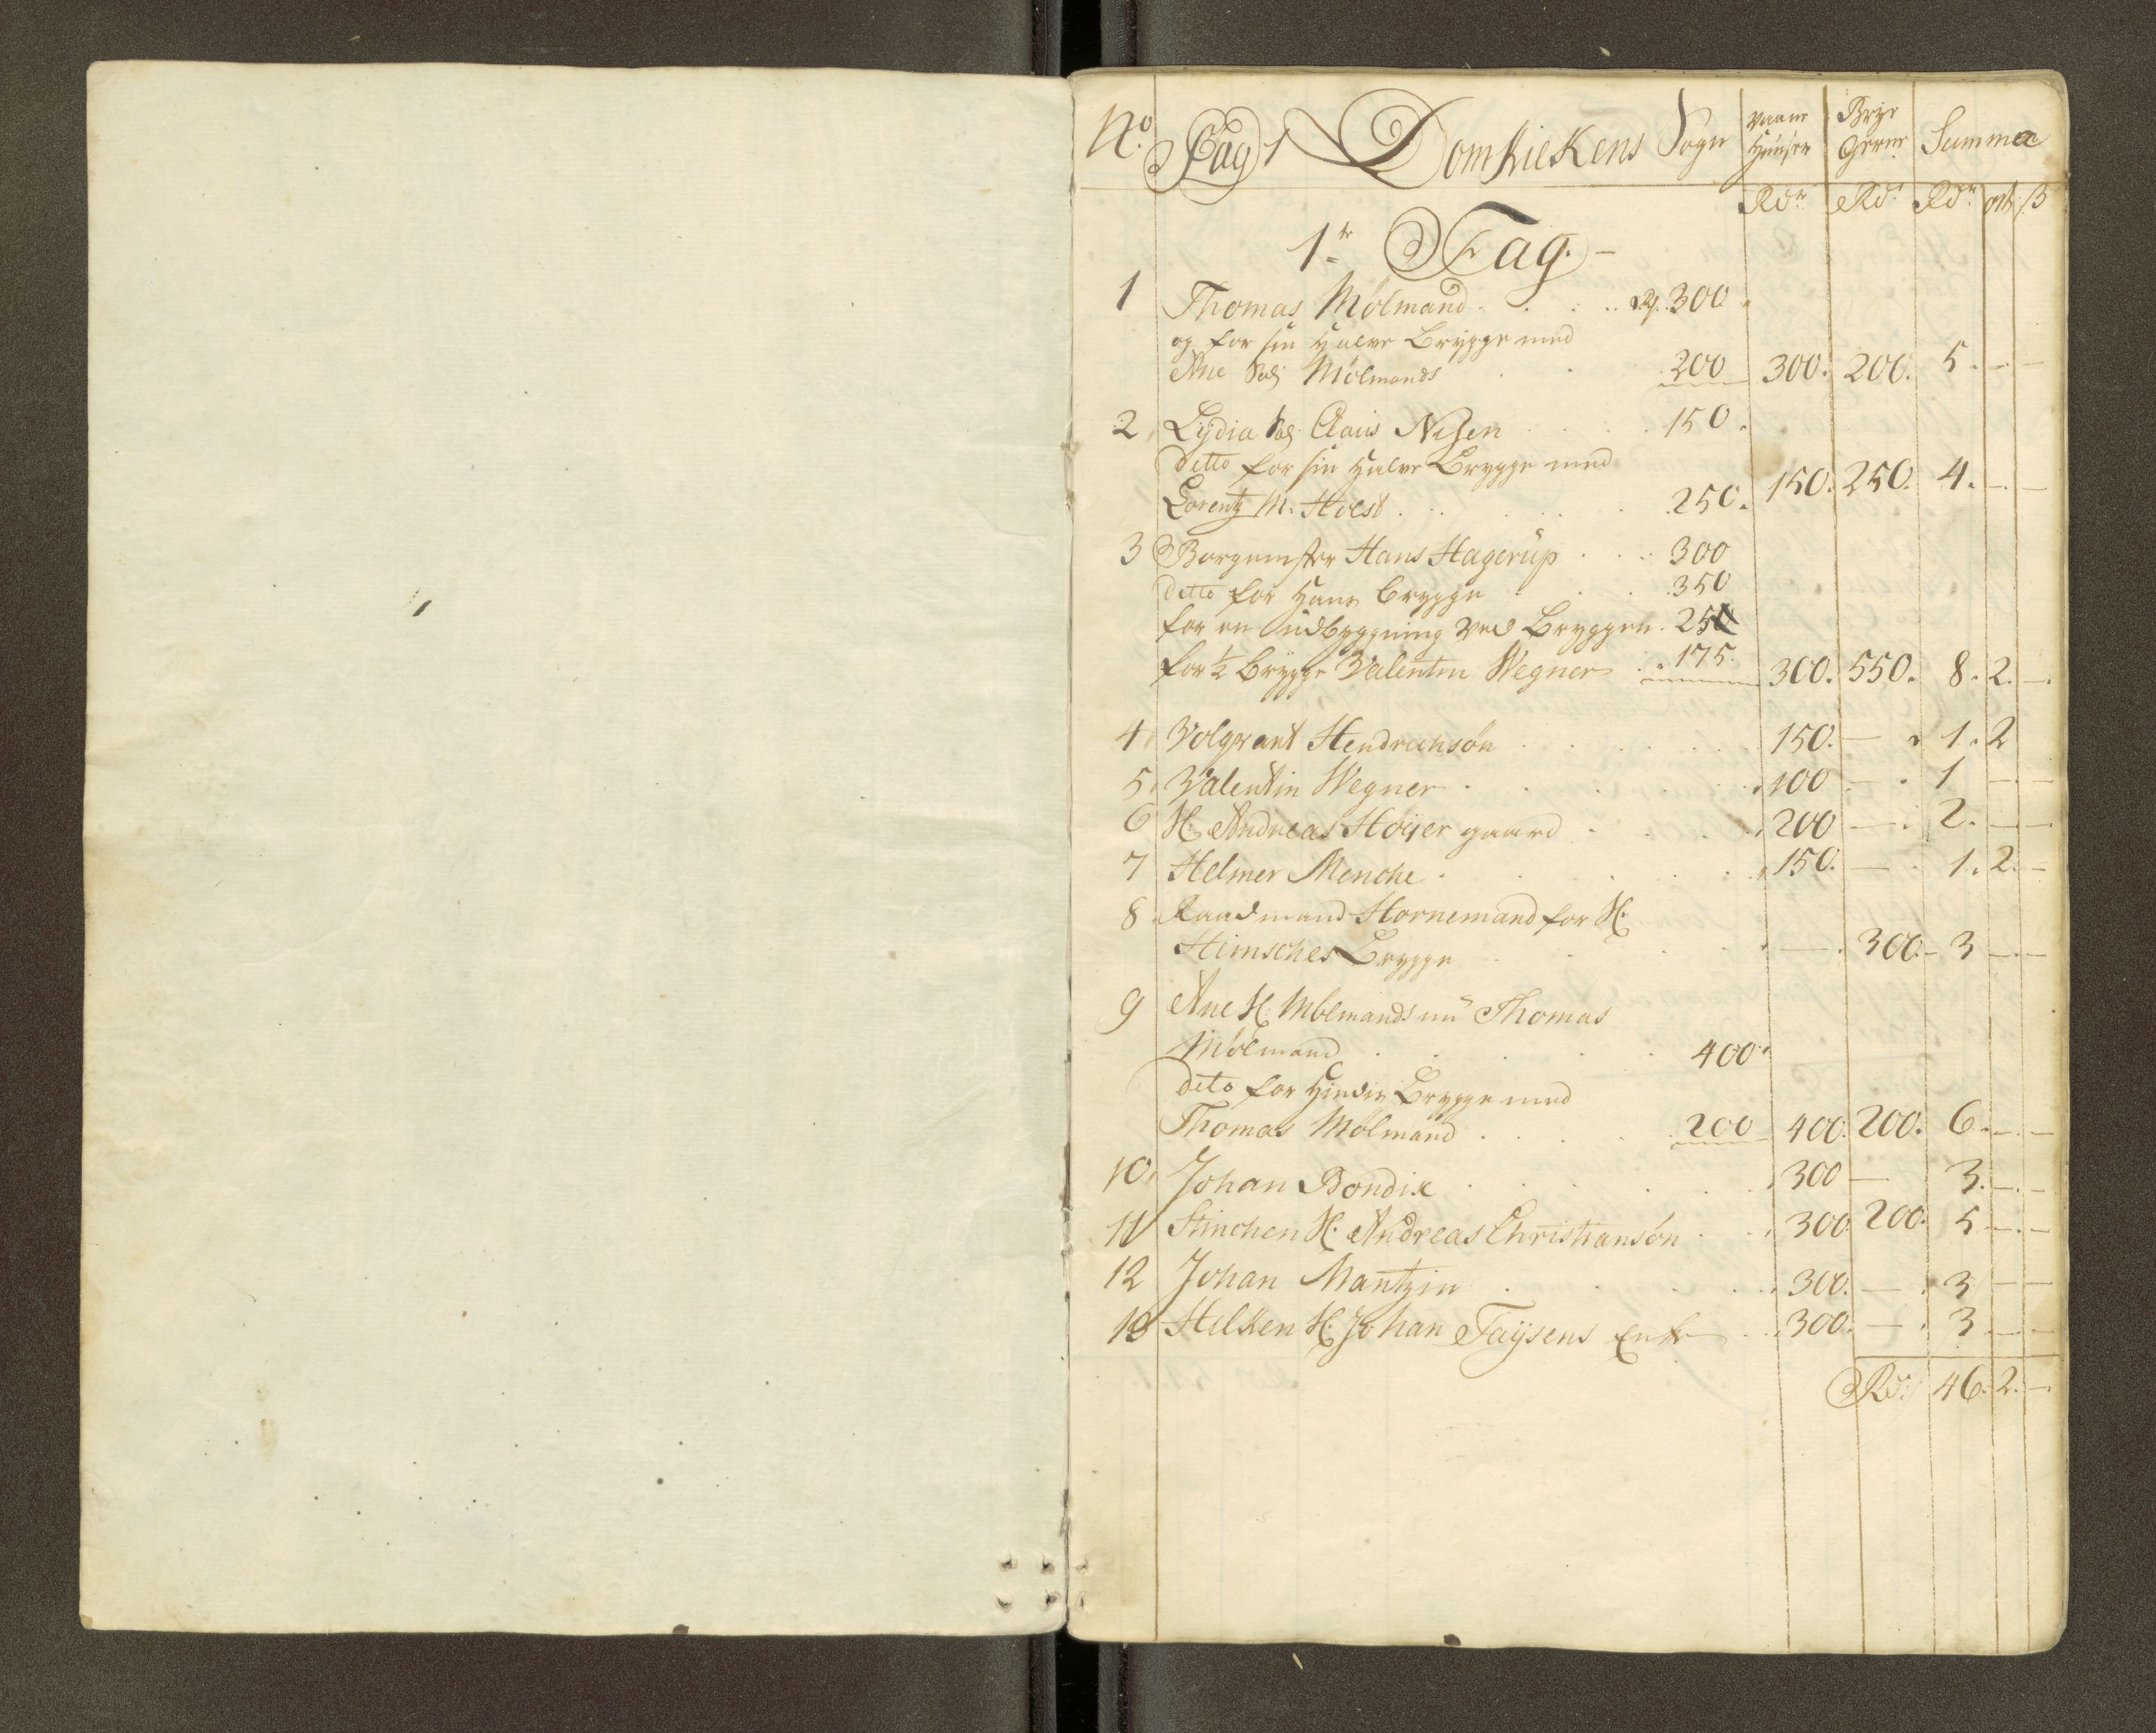 No. Pag 1 Domkirkens Sogn Vaane Huuser Bryg Gerne Summa
Rdr Rdr Rdr ort ß
1te Fag.
1 Thomas Mølmand Rd. 300
og for sin halve Brygge med
Ane Sal. Mølmands 200 300. 200. 5. - -
2 Lydia Sal. Claus Nisen 150.
ditto for sin halve Brygge med
Lorentz M. Holst 250. 150. 250. 4. - -
3 Borgemster Hans Hagerup 300
ditto for Hans Brygge 350
for en Udbyggning ved Bryggen 25
for ½ Brygge Valentin Wegner 175. 300. 550. 8. 2. -
4 Volqvart Hendrichsøn 150. - 1. 2
5 Valentin Wegner 100 - 1 - -
6 H. Andreas Høyer gaard 200 - 2. - -
7 Helmer Menche 150. - 1. 2. -
8 Raadmand Hornemand for H.
Heimsches Brygge - 300. 3 - -
9 Ane H. Mølmands nu Thomas
Mølmand 400
dito for Hindis Brygge med
Thomas Mølmand 200 400. 200. 6. - -
10 Johan Bondix 300 - 3. - -
11 Stinchen H. Andreas Christiansøn 300 200. 5 - -
12 Johan Mantzin 300. - 3 - -
13 Hilken H. Johan Taysens Enke 300. - 3 - -
Rd. 46. 2. -